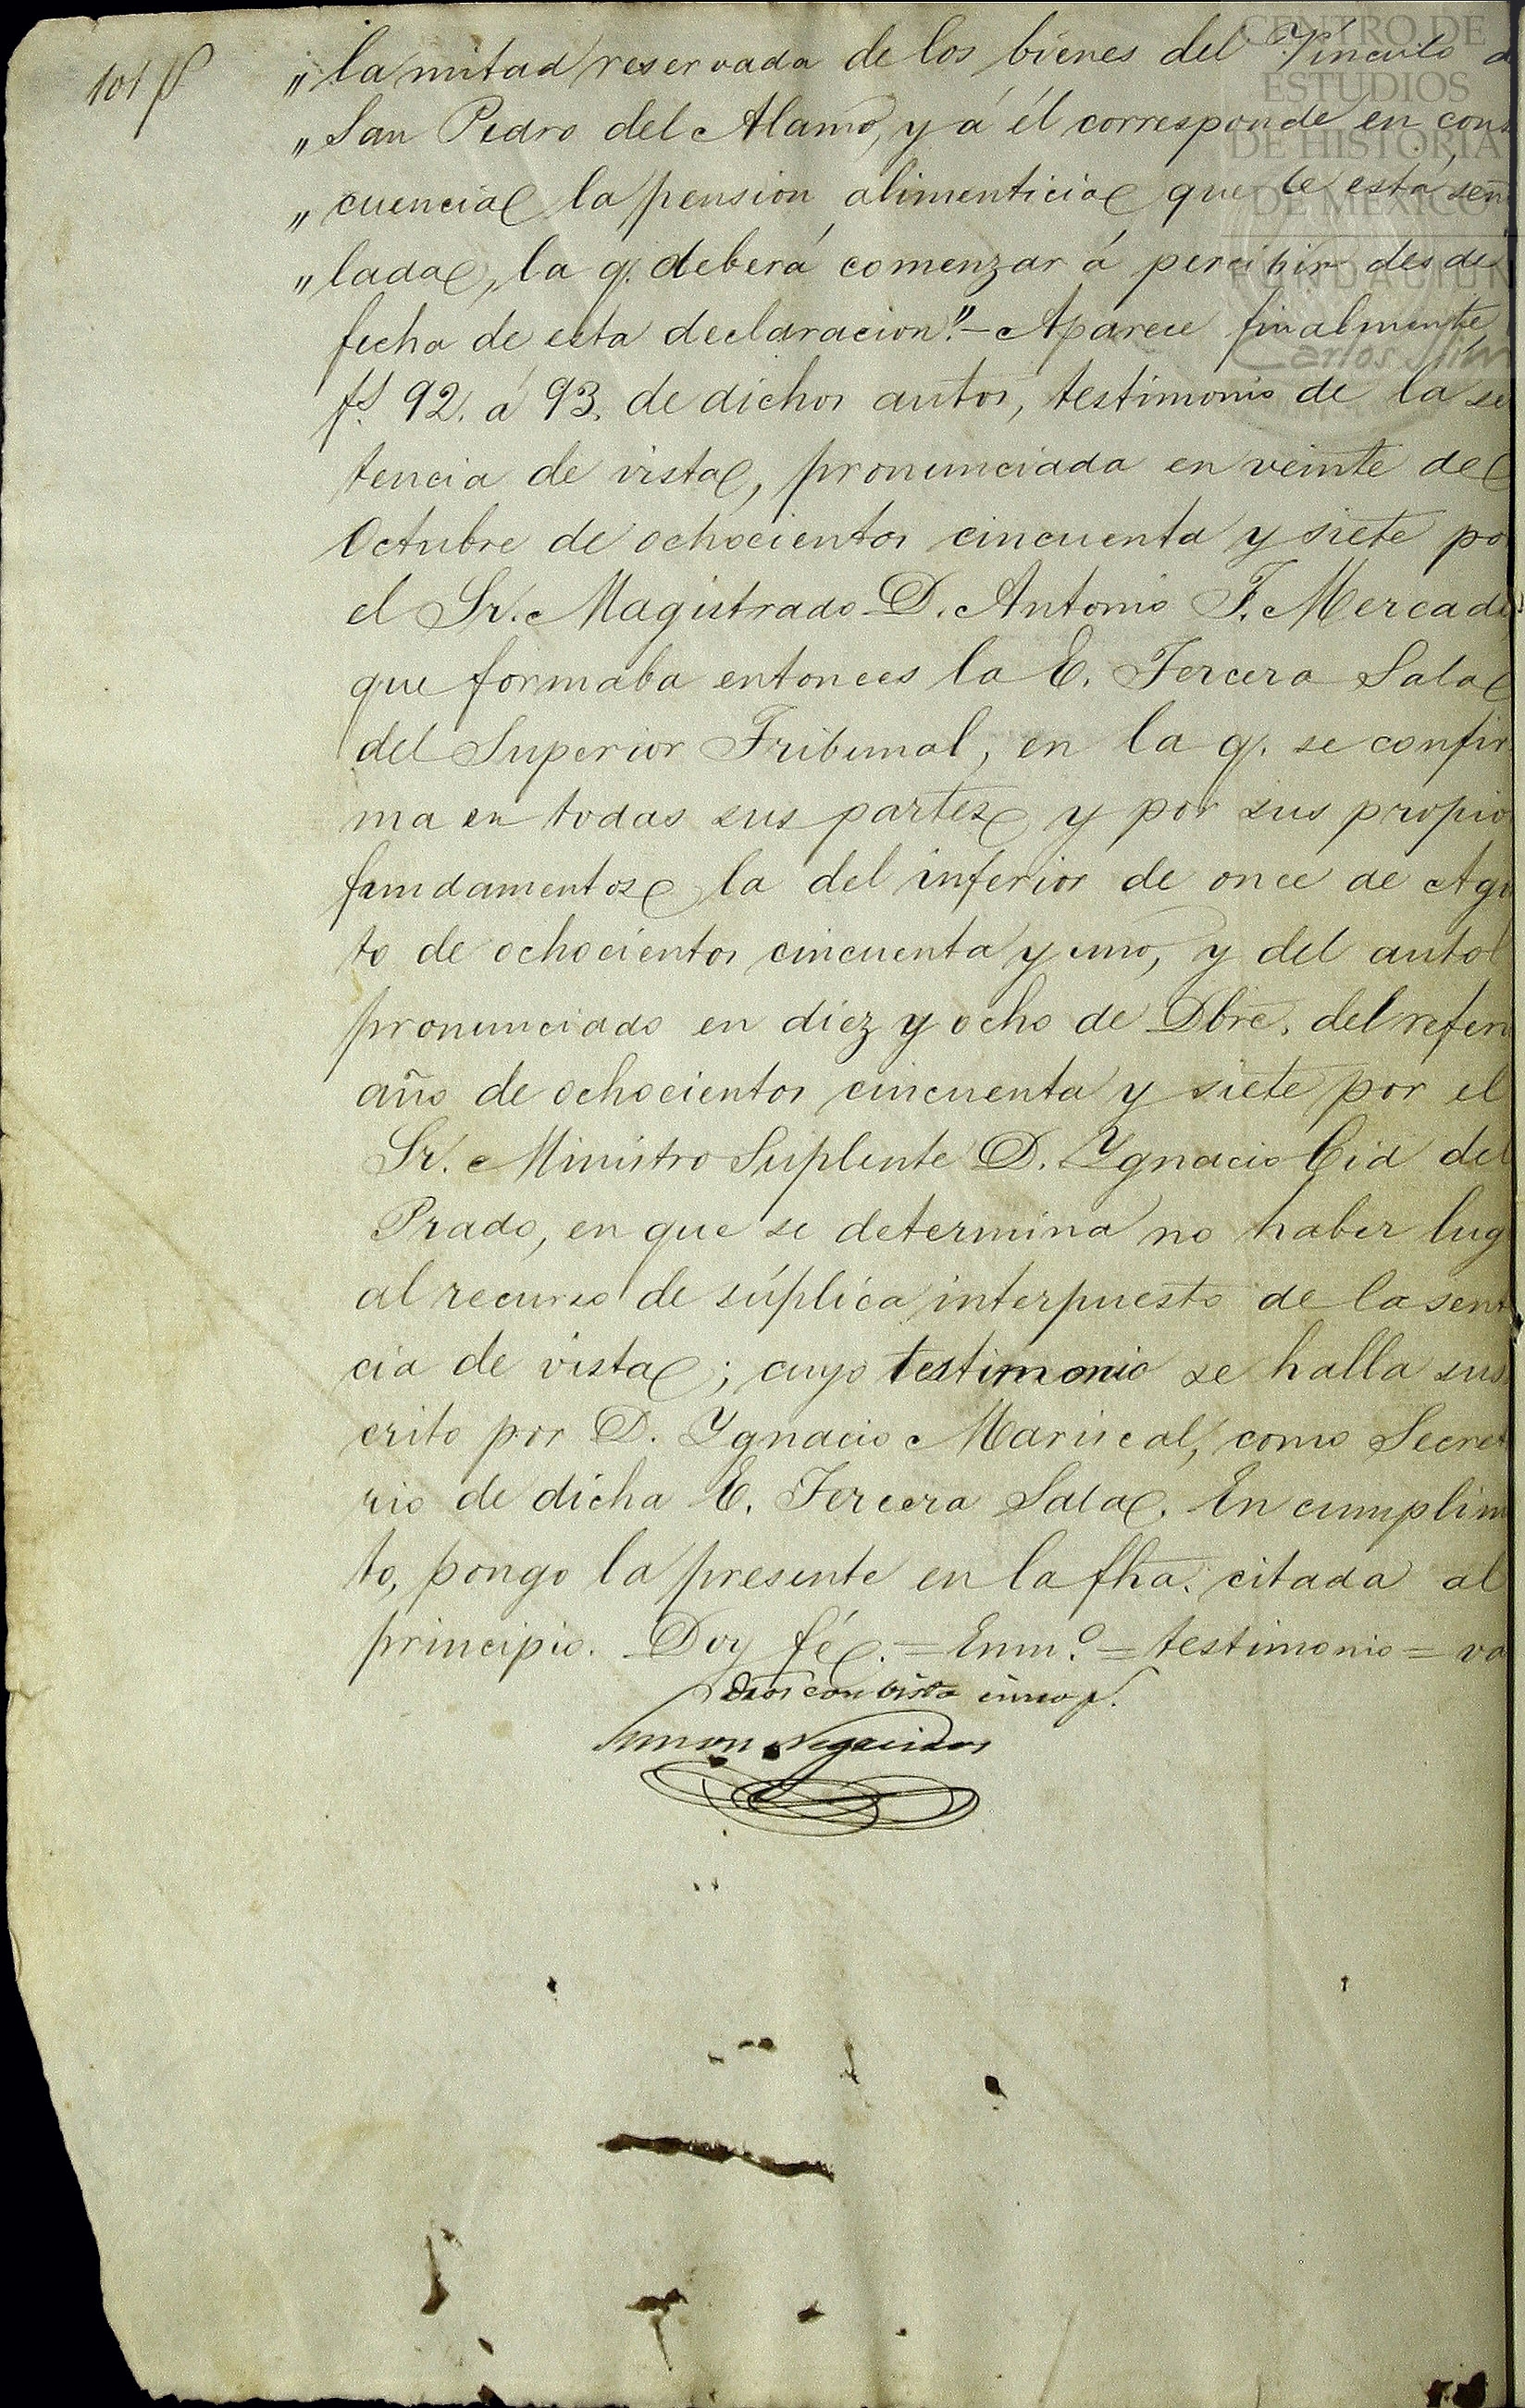 101 p
CENTRO DE
ESTUDIOS
DE HISTORIA
DE MEXICO
FUNDACION
Carlos Slim
„ la mitad reservada de los bienes del Vínculo d
„ San Pedro del Alamo, y á él corresponde en cons
„ cuencia la pension alimenticia que le está señ
„ lada, la q. deberá comenzar á percibir desde
fecha de esta declaracion."– Aparece finalmente
fs. 92. á 93. de dichos autos, testimonio de la se
tencia de vista, pronunciada en veinte de
Octubre de ochocientos cincuenta y siete po
el Sr. Magistrado D. Antonio F. Mercad
que formaba entonces la E. Tercera Sala
del Superior Tribunal, en la q. se confir
ma en todas sus partes y por sus propio
fundamentos la del inferior de once de Ago
to de ochocientos cincuenta y uno, y del auto
pronunciado en diez y ocho de Dbre. del referi
año de ochocientos cincuenta y siete por el
Sr. Ministro Suplente D. Ygnacio Cid del
Prado, en que se determina no haber lug
al recurso de súplica interpuesto de la sent
cia de vista; cuyo testimonio se halla sus
crito por D. Ygnacio Mariscal, como Secret
rio de dicha E. Tercera Sala. En cumplim
to, pongo la presente en la fha. citada al
principio. Doy fé. = Enm.º = testimonio = va
Dros con vista cinco p.
Simon Negreiros